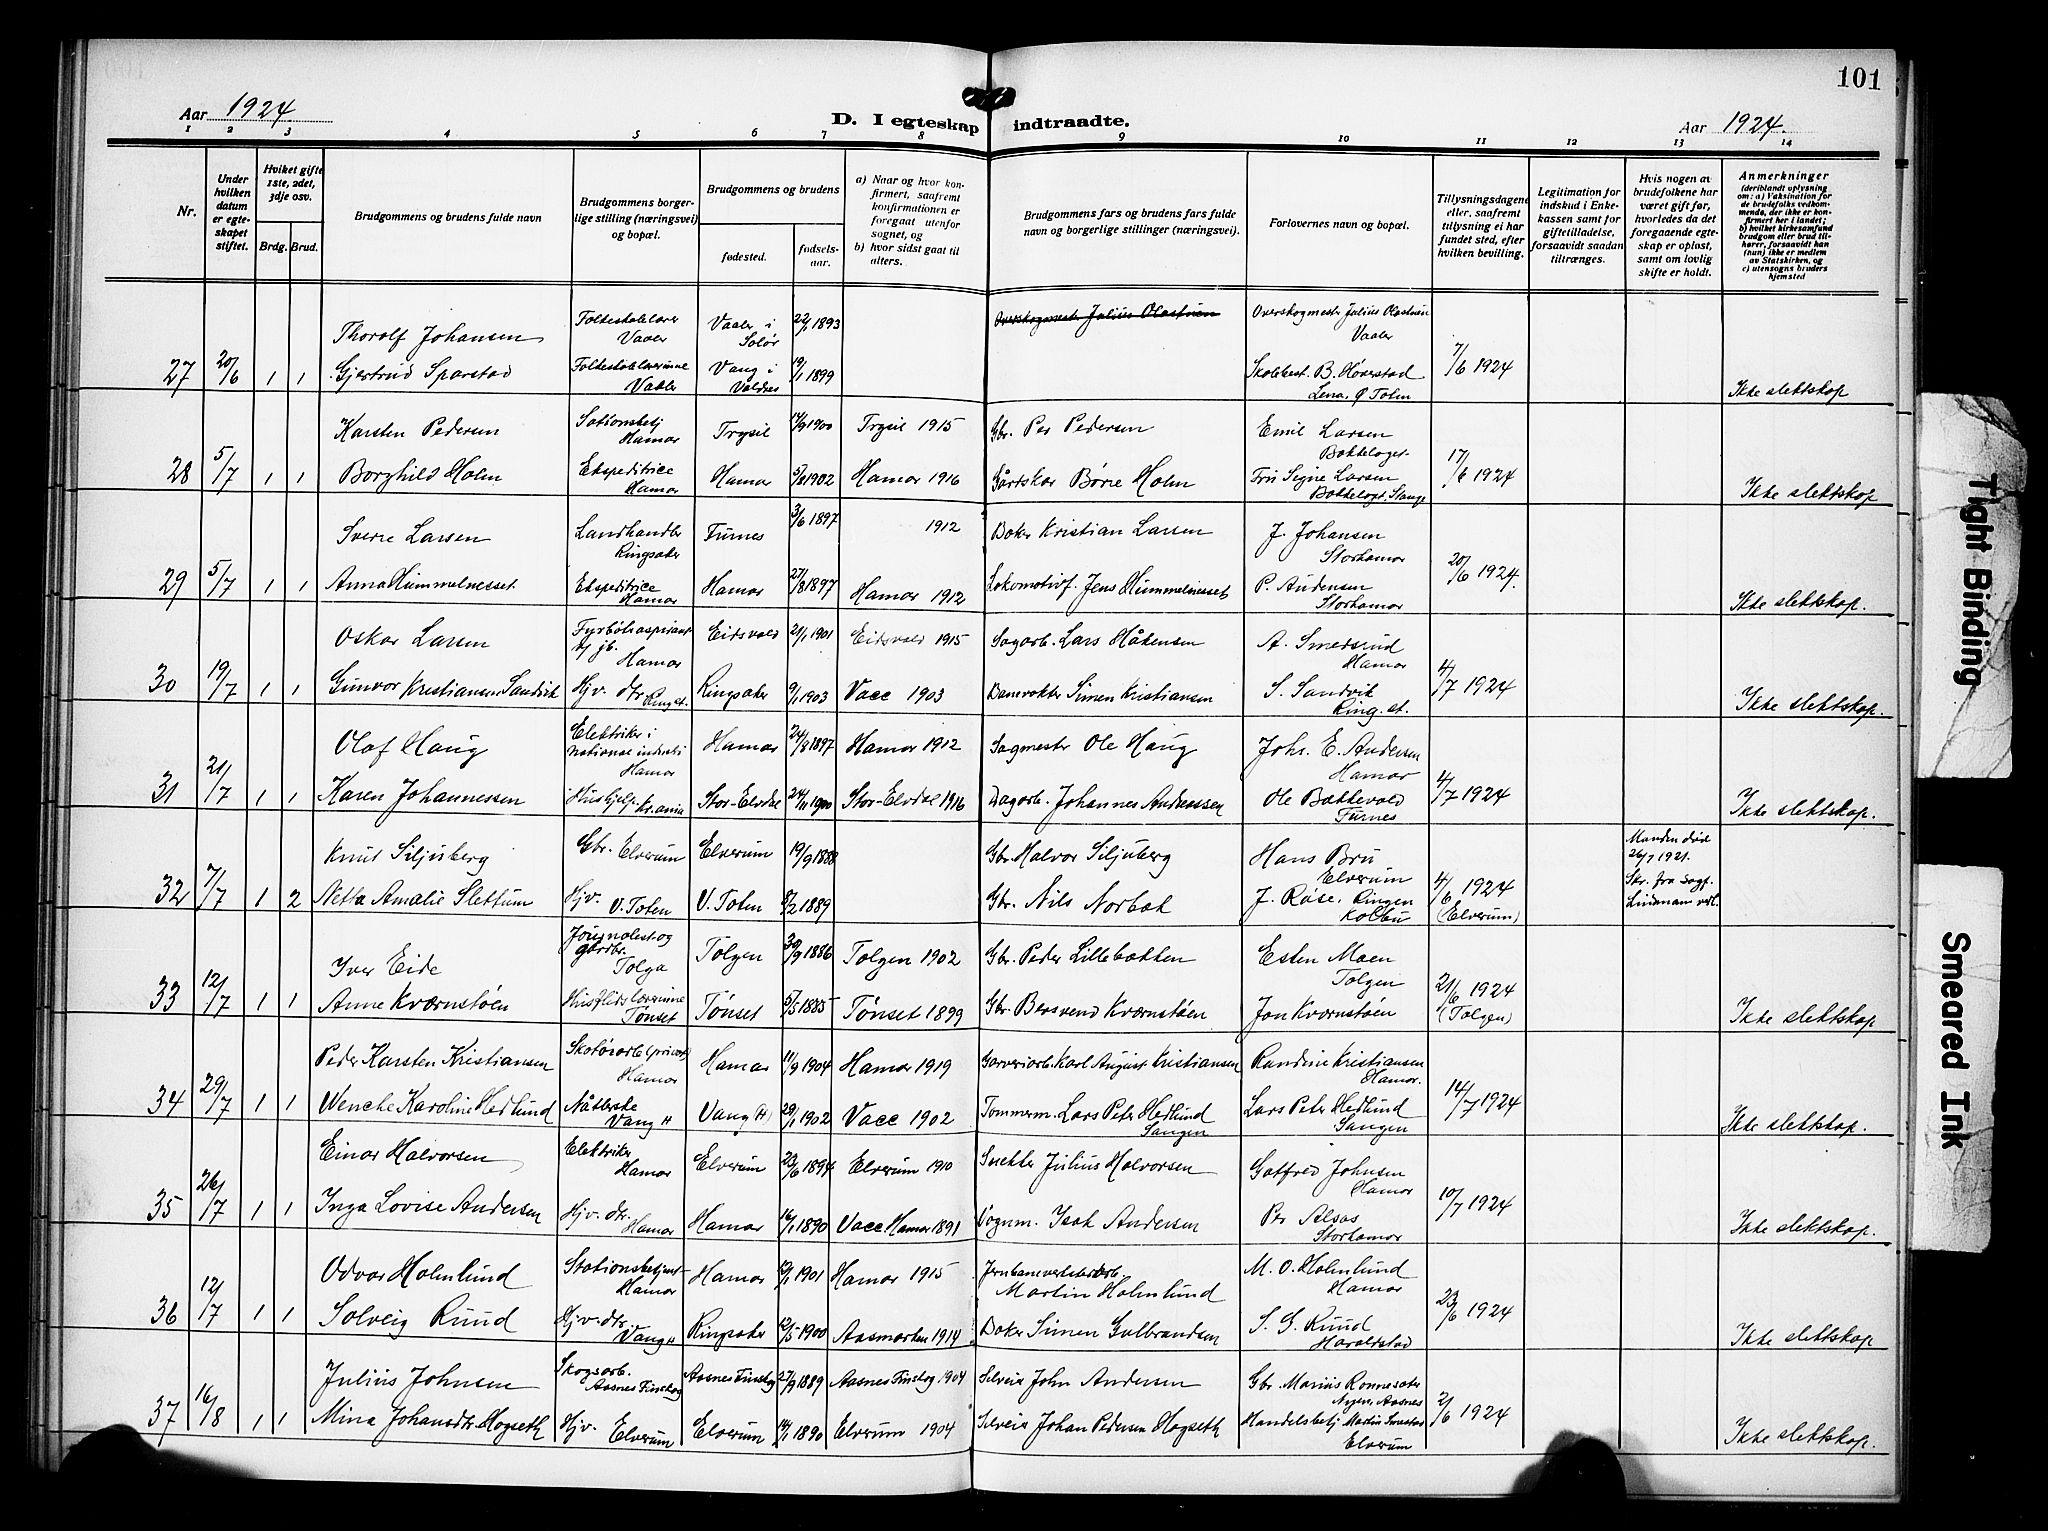 101
Aar 1924
D. I egteskap indtraadte.
Aar 1924.
1 2 3 4 5 6 7 8 9 10 11 12 13 14
Nr.
Under hvilken datum er egteskapet stiftet.
Hvilket gifte 1ste, 2det, 3dje osv.
Brdg. Brud.
Brudgommens og brudens fulde navn
Brudgommens borgerlige stilling (næringsvei) og bopæl.
Brudgommens og brudens
fødested.
fødselsaar.
a) Naar og hvor konfirmert, saafremt konfirmationen er foregaat utenfor sognet, og
b) hvor sidst gaat til alters.
Brudgommens fars og brudens fars fulde navn og borgerlige stillinger (næringsvei).
Forlovernes navn og bopæl.
Tillysningsdagene eller, saafremt tillysning ei har fundet sted, efter hvilken bevilling.
Legitimation for indskud i Enkekassen samt for giftetilladelse, forsaavidt saadan tiltrænges.
Hvis nogen av brudefolkene har været gift før, hvorledes da det foregaaende egteskap er opløst, samt om lovlig skifte er holdt.
Anmerkninger (deriblandt oplysning om: a) Vaksination for de brudefolks vedkommende, der ikke er konfirmert her i landet; b) hvilket kirkesamfund brudgom eller brud tilhører, forsaavidt han (hun) ikke er medlem av Statskirken, og c) utensogns bruders hjemsted
Thorolf Johansen Folkeskolelærer Vaaler Vaaler i Solør 22/1 1893 Overskogmester Julius Olastuen Overskogmester Julius Olastuen Vaaler
27 20/6 1 1 Gjertrud Sparstad Folkeskolelærerinne Vaaler Vang i Valdres 19/1 1899 Skolebest. B. Høverstad Lena, Ø Toten 7/6 1924 Ikke slektskap
Karsten Pedersen Sationsbetj Hamar Trysil 14/9 1900 Trysil 1915 Gbr. Per Pedersen Emil Larsen Bakkelaget
28 5/7 1 1 Borghild Holm Ekspeditrice Hamar Hamar 5/8 1902 Hamar 1916 Børre Holm Fru Signe Larsen Bakkelagt, Stange 17/6 1924 Ikke slektskap
Sverre Larsen Landhandler Ringsaker Furnes 3/6 1897 1912 Baker Kristian Larsen J. Johansen Storhamar
29 5/7 1 1 Anna Hummelnesset Ekspeditrice Hamar Hamar 27/8 1897 Hamar 1912 Lokomotivf. Jens Hummelnesset P. Andersen Storhamar 20/6 1924. Ikke slektskap.
Oskar Larsen Fyrbøteraspirant v/ jb. Hamar Eidsvold 21/1 1901 Eidsvold 1915 Sagarb. Lars Håkensen A. Smedsrud Hamar
30 19/7 1 1 Gunvor Kristiansen Sandvik Hjv. dtr. Ring st. Ringsaker 9/1 1903 Vacc 1903 Banevokter Simen Kristiansen S. Sandvik Ring. st. 4/7 1924 Ikke slektskap.
Olaf Haug Elektriker i national industri Hamar Hamar 24/8 1897 Hamar 1912 Sagmester Ole Haug Johs. E. Andersen Hamar
31 21/7 1 1 Karen Johannessen Hushjelp Kr.ania Stor-Elvdal 24/11 1900 Stor-Elvdal 1916 Dagarb. Johannes Andreassen Ole Bakkevold Furnes 4/7 1924 Ikke slektskap.
Knut Siljuberg Gbr. Elverum Elverum 19/9 1888 Gbr Halvor Siljuberg Hans Bru Elverum Manden død 26/7 1921.
32 7/7 1 2 Netta Amalie Slettum Hjv. V. Toten V. Toten 8/2 1889 Gbr. Nils Norbak J. Røse, Ringen Kolbu 4/6 1924 (Elverum) Skr. fra sagf. Lindemann vedl.
Iver Eide Journalist og gårdbr. Tolga Tolgen 30/9 1886 Tolgen 1902 Gbr. Peder Lillebakken Esten Moen Tolgen
33 12/7 1 1 Anne Kværnstøen Husflidslærerinne Tønset Tønset 5/5 1885 Tønset 1899 Gbr Bersvend Kværnstøen Jon Kværnstøen 21/6 1924 (Tolgen) Ikke slektskap
Peder Karsten Kristiansen Skotøiarb. (privat) Hamar Hamar 11/9 1904 Hamar 1919 Garveriarb. Karl August Kristiansen Randine Kristiansen Hamar.
34 29/7 1 1 Wenche Karoline Hedlund Nåtlerske Vang H Vang (H) 29/1 1902 Vacc 1902 Tommerm. Lars Peter Hedlund Sangen Lars Peter Hedlund Sangen 14/7 1924 Ikke slektskap.
Einar Halvorsen Elektriker Hamar Elverum 23/6 1894 Elverum 1910 Snekker Julius Halvorsen Gotfred Johnsen Hamar
35 26/7 1 1 Inga Lovise Andersen Hjv. dtr. Hamar Hamar 16/1 1890 Vacc. Hamar 1891 Vognm. Isak Andersen Per Alsos Storhamar 10/7 1924 Ikke slektskap.
Odvar Holmlund Stationsbetjent Hamar Hamar 1901 Hamar 1915 Jernbaneverkstedarb. Martin Holmlund M. O. Holmlund Hamar
36 12/7 1 1 Solveig Ruud Hjv. dtr. Vang H Ringsaker 12/5 1900 Aasmarken 1914 Baker Simen Gulbrandsen S. G. Ruud Haraldstad 23/6 1924 Ikke slektskap
Julius Johnsen Skogsarb. Aasnes Finskog Aasnes Finskog 27/9 1889 Aasnes Finskog 1904 Selveier John Andersen Gbr. Marius Ronnesæter Aasnes
37 16/8 1 1 Mina Johansdtr. Hogseth Hjv. Elverum Elverum 14/1 1890 Elverum 1904 Selveier Johan Pedersen Hogseth Handelsbetj Martin Elverum 2/6 1924 Ikke slektskap.
Tight Binding
Smeared Ink